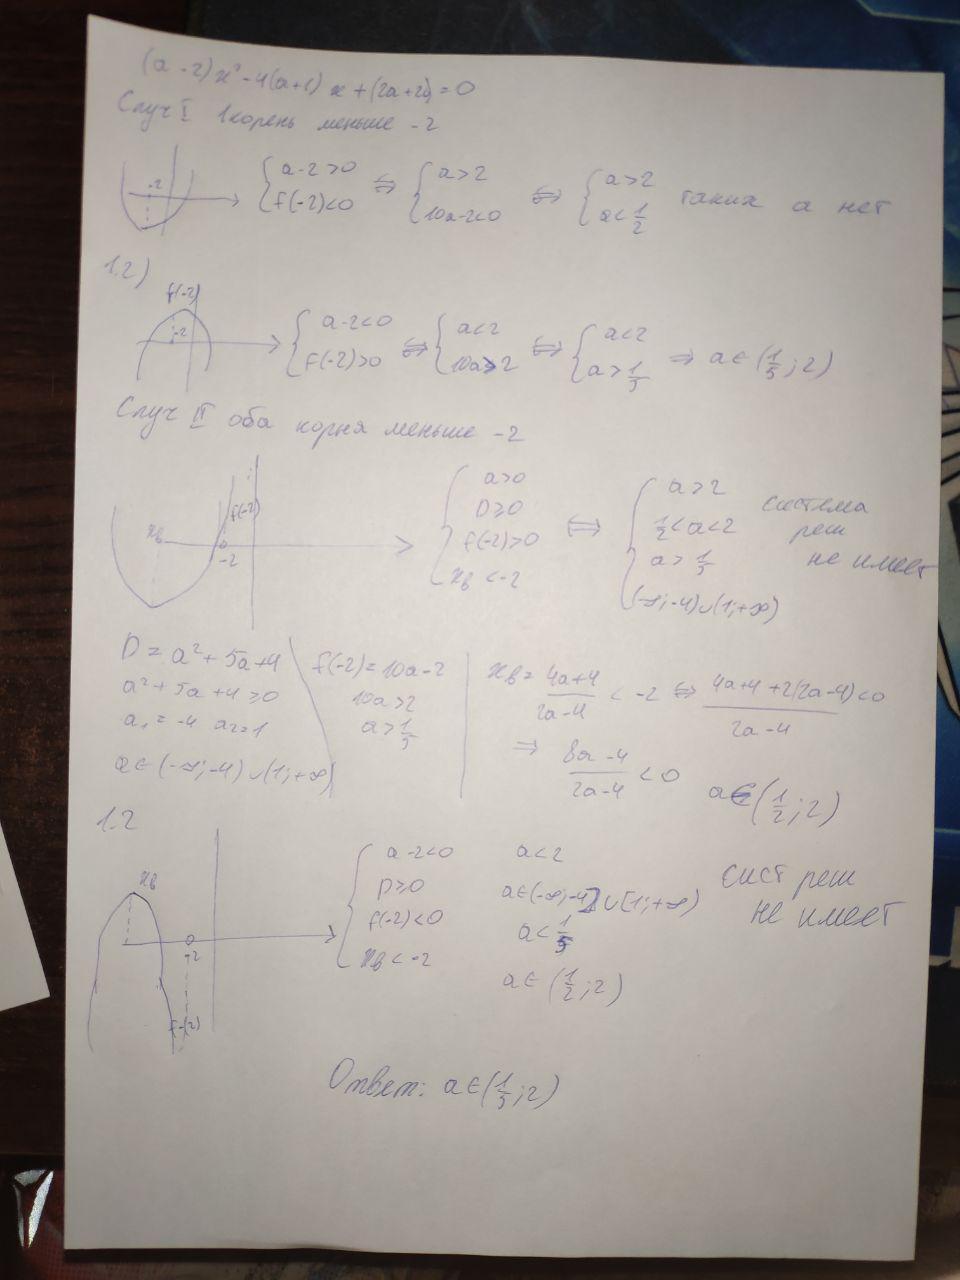 (a-2)x² - 4(a+1)x + (2a+20) = 0
Случ I 1 корень меньше -2
-2 { a-2>0 f(-2)<0 ⇔ { a>2 10a-2<0 ⇔ { a>2 a<1/2 таких a нет
1.2)
f(-2) -2 { a-2<0 f(-2)>0 ⇔ { a<2 10a>2 ⇔ { a<2 a>1/5 ⇒ a∈(1/5;2)
Случ II оба корня меньше -2
xв f(-2) -2 { a>0 D≥0 f(-2)>0 xв<-2 ⇔ { a>2 1/2<a<2 a>1/5 (-∞;-4)∪(1;+∞) система реш не имеет
D = a²+5a+4
a²+5a+4≥0
a₁=-4 a₂=1
a∈(-∞;-4)∪(1;+∞)
f(-2)=10a-2
10a>2
a>1/5
xв = 4a+4/2a-4 < -2 ⇔ 4a+4+2(2a-4)/2a-4 <0
⇒ 8a-4/2a-4 <0 a∈(1/2;2)
1.2
xв -2 f(-2) { a-2<0 D≥0 f(-2)<0 xв<-2
a<2
a∈(-∞;-4]∪[1;+∞)
a<1/5
a∈(1/2;2)
сист реш
не имеет
Ответ: a∈(1/5;2)